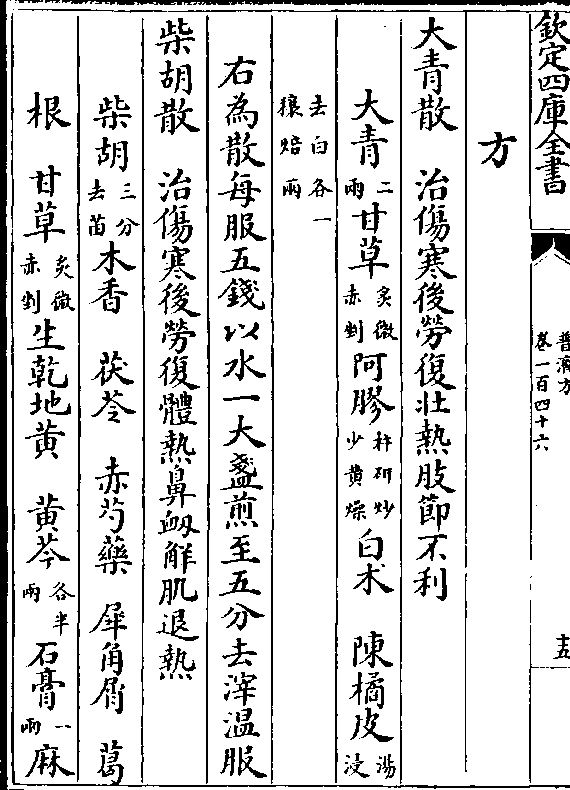 欽定四庫全書
普濟方
卷一百四十六
十五
方
大青散 治傷寒後勞復壯熱肢節不利
大青二兩甘草炙微赤剉阿膠杵研炒少黄燥白术 陳橘皮湯浸
去白瓤焙各一兩
右為散每服五錢以水一大盞煎至五分去滓温服
柴胡散 治傷寒後勞復體熱鼻衂解肌退熱
柴胡三分去苗木香 茯苓 赤芍藥 犀角屑 葛
根 甘草炙微赤剉生乾地黄 黄芩各半兩石膏一兩麻